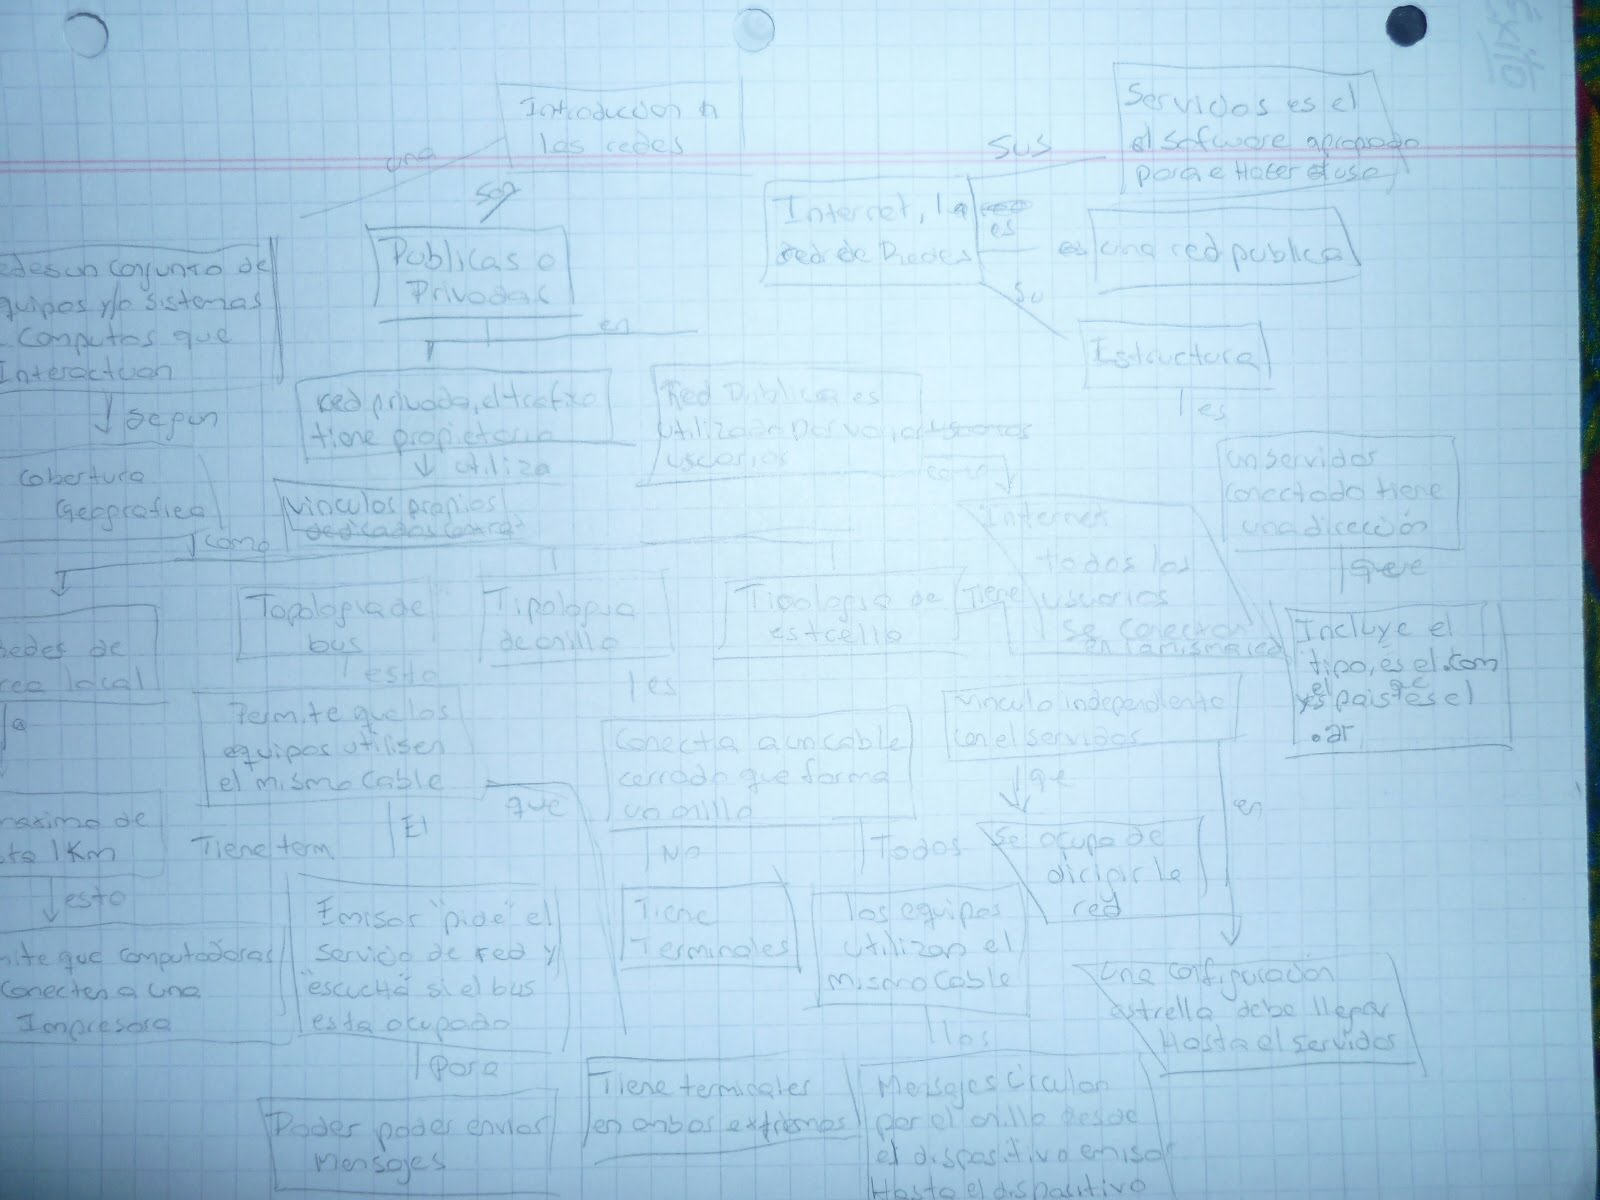 Introduccion a
las redes
una
son
Publicas o
Privadas
en
edes un conjunto de
quipos y/o sistemas
computos que
Interactuan
segun
cobertura
Geografica
como
edes de
rea local
maximo de
ta 1 Km
esto
mite que computadoras
conecten a una
Impresora
red privada, el trafico
tiene propietario
utiliza
vinculos propios
Red Publica es
utilizada por
usuarios
como
Internet
todos los
usuarios
se conectan
en la misma red
Topologia de
bus
esto
Permite que los
equipos utilisen
el mismo cable
que
El
Tiene term
Emisor "pide" el
servicio de red y
"escucha" si el bus
esta ocupado
para
Poder poder envios
Mensajes
Tiene terminales
en ambos extremos
Tipologia
de anillo
es
Conecta a un cable
cerrado que forma
un anillo
No
Tiene
Terminales
Todos
los equipos
utilizan el
mismo cable
los
Mensajes Circulan
por el anillo desde
el dispositivo emisor
Hasta el dispositivo
Tipologia de
estrella
Tiene
vinculo independiente
con el servidos
qe
Se ocupa de
dirigir la
red
en
una configuracion
estrella debe llegar
Hasta el servidos
Internet, la
red de Redes
sus
Servidos es el
el software apropiado
para e Hacer el uso
es
es
una red publica
su
Estructura
es
un servidos
conectado tiene
una direccion
que
Incluye el
tipo, es el .com
y el pais que es el
.ar